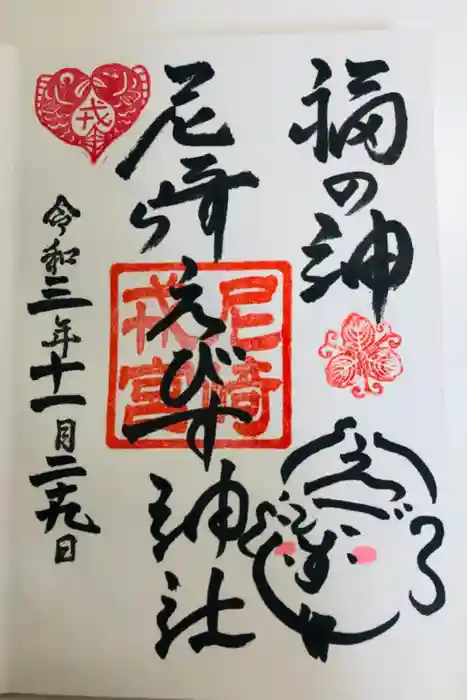 福の神
尼崎えびす神社
尼崎
戎宮
戎
令和三年十一月二十九日
えびす